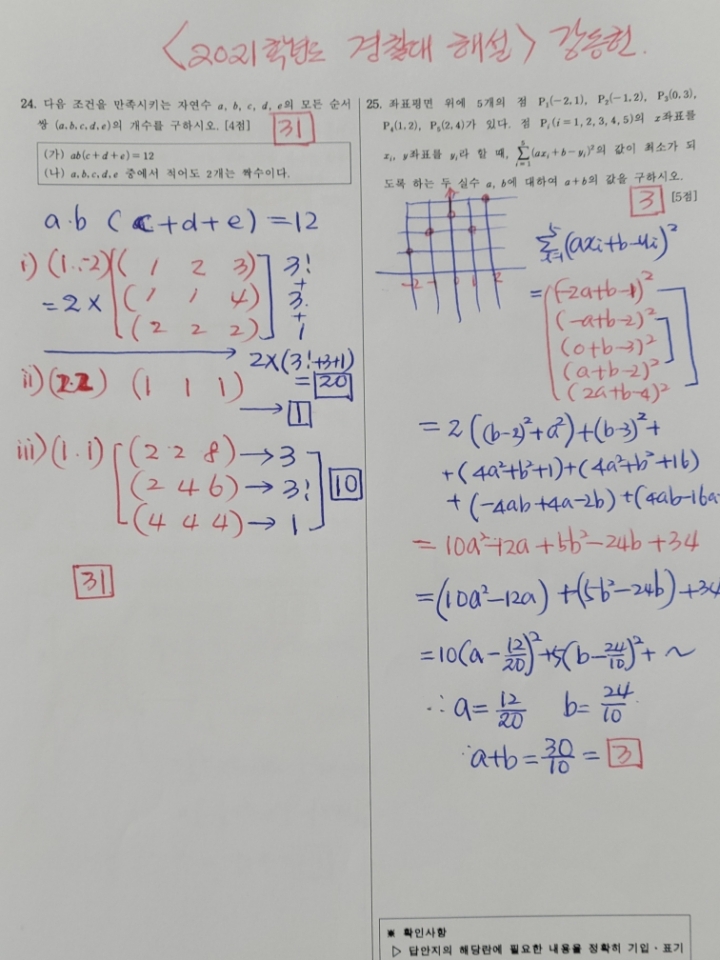 <2021학년도 경찰대 해설> 강동헌.
24. 다음 조건을 만족시키는 자연수 a, b, c, d, e의 모든 순서
쌍 (a, b, c, d, e)의 개수를 구하시오. [4점]
31
(가) ab(c+d+e)=12
(나) a, b, c, d, e 중에서 적어도 2개는 짝수이다.
a·b (c+d+e)=12
i) (1, 2) ( 1 2 3) 3!
+
=2× ( 1 1 4) 3.
+
(2 2 2) 1
2×(3!+3+1)
=20
ii) (2·2) (1 1 1)
→ 1
iii) (1·1) (2 2 8) → 3
(2 4 6) → 3! 10
(4 4 4) → 1
31
25. 좌표평면 위에 5개의 점 P₁(−2, 1), P₂(−1, 2), P₃(0, 3),
P₄(1, 2), P₅(2, 4)가 있다. 점 Pᵢ(i=1, 2, 3, 4, 5)의 x좌표를
xᵢ, y좌표를 yᵢ라 할 때, ∑ᵢ₌₁⁵(axᵢ+b−yᵢ)²의 값이 최소가 되
도록 하는 두 실수 a, b에 대하여 a+b의 값을 구하시오.
3 [5점]
-2 -1 0 1 2
∑ᵢ₌₁⁵(axi+b−yi)²
= (−2a+b−1)²
(−a+b−2)²
(0+b−3)²
(a+b−2)²
(2a+b−4)²
= 2((b−2)²+a²)+(b−3)²+
+(4a²+b²+1)+(4a²+b²+16)
+(−4ab+4a−2b)+(4ab−16a−
= 10a²−12a+5b²−24b+34
=(10a²−12a)+(5b²−24b)+34
=10(a−12/20)²+5(b−24/10)²+~
∴ a=12/20 b=24/10
∴ a+b=30/10=3
※ 확인사항
▷ 답안지의 해당란에 필요한 내용을 정확히 기입·표기